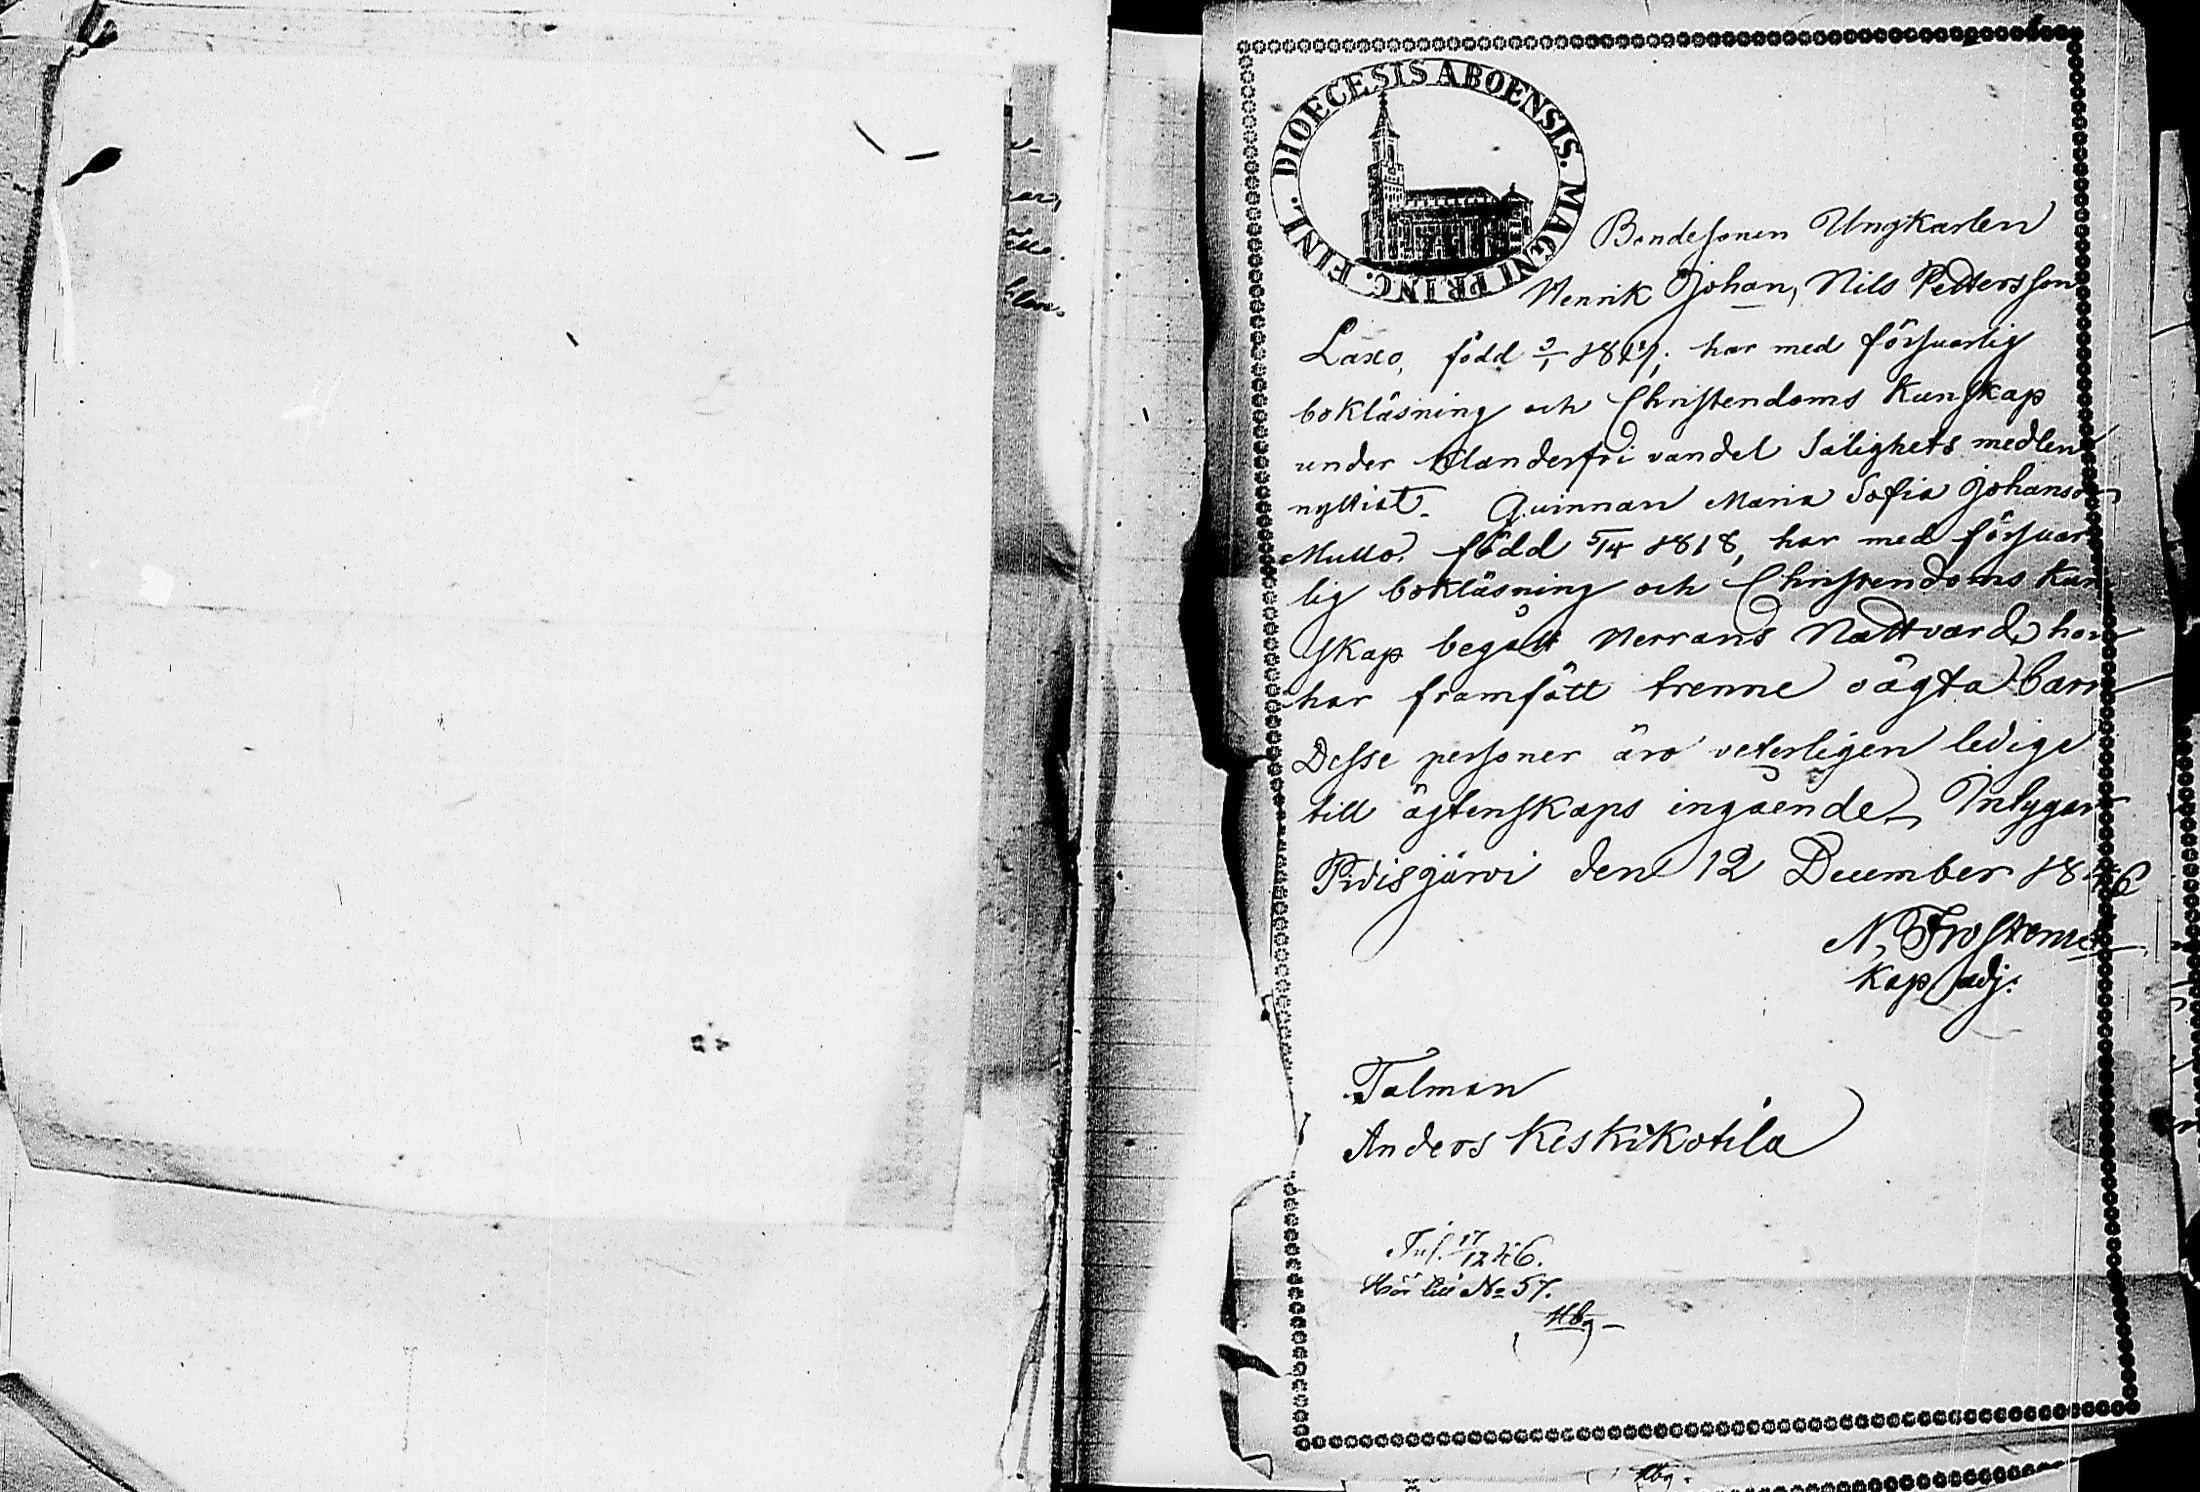 DIOECESIS ABOENSIS. MAGNI PRINC. FINL.
Bondesonen Ungkarlen
Henrik Johan, Nils Pettersson
Laxo, född 3/1 1817, har med försvarlig
bokläsning och Christendoms Kunskap
under oklanderfri vandel Salighets medlen
nyttiat. Qvinnan Maria Sofia Johansd
Mutto, född 5/4 1818, har med försvar
lig bokläsning och Christendoms Kun
skap begått Herrans Nattvard, hon
har framfött trenne oägta barn
Desse personer äro veterligen ledige
till ägtenskaps ingående, Intygar
Pidisjärvi den 12 December 1846
N. Frosterus
Kap adj.
Talman
Anders Keskikotila
Inf. 17/12 46.
Hör till No 57.
Hbg
Hbg.